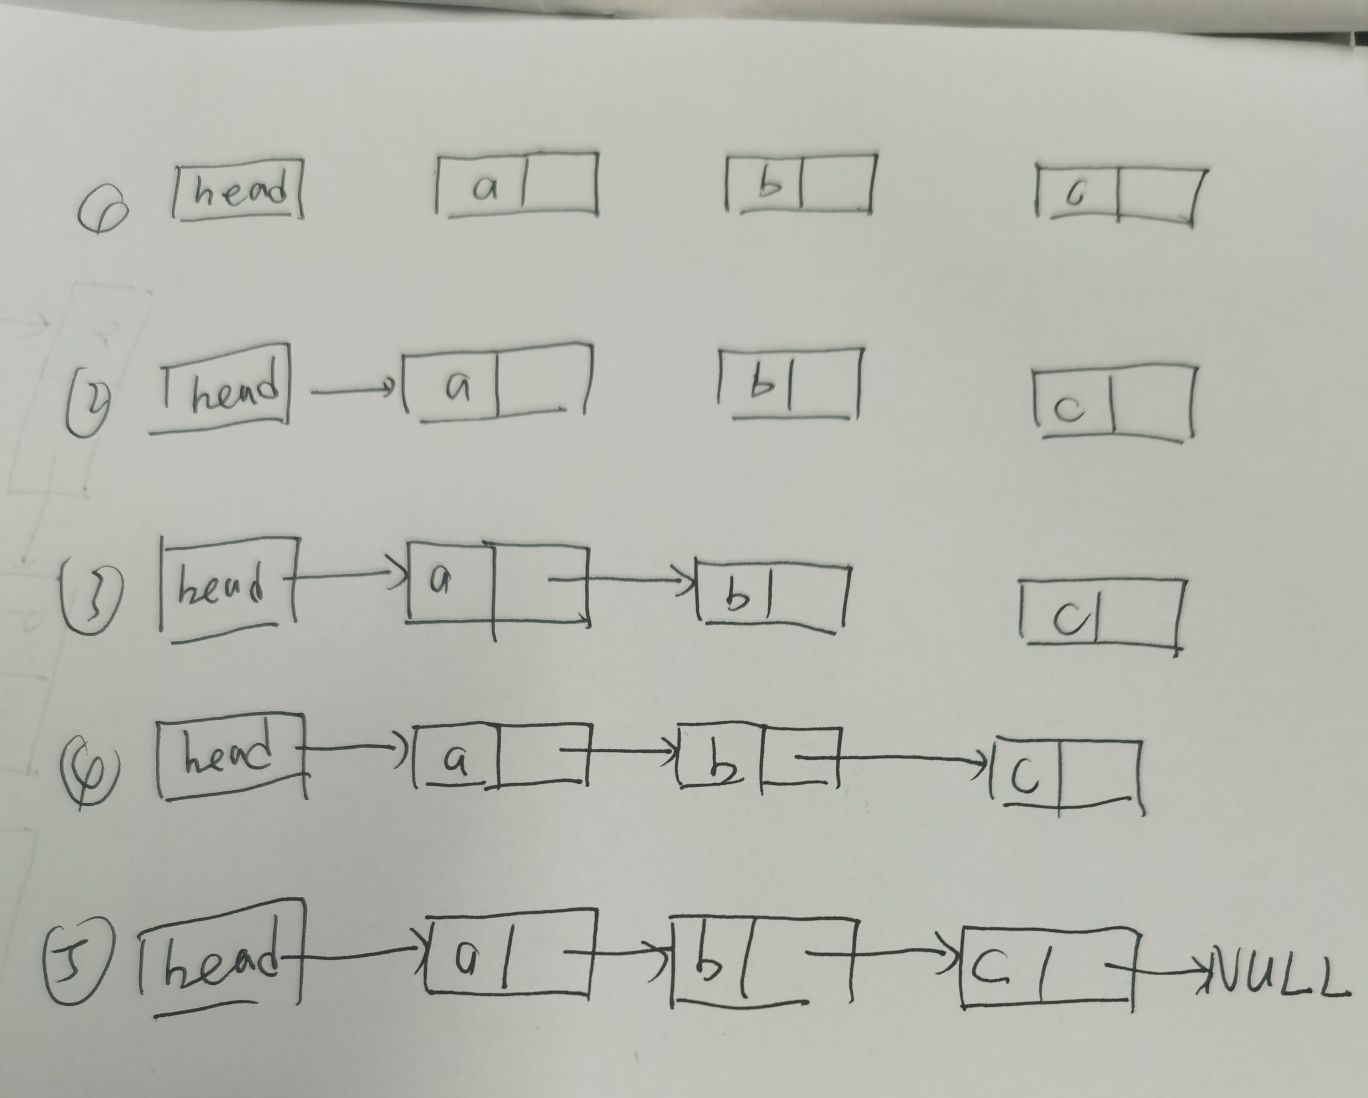 ① head a b c
② head a b c
③ head a b c
④ head a b c
⑤ head a b c NULL